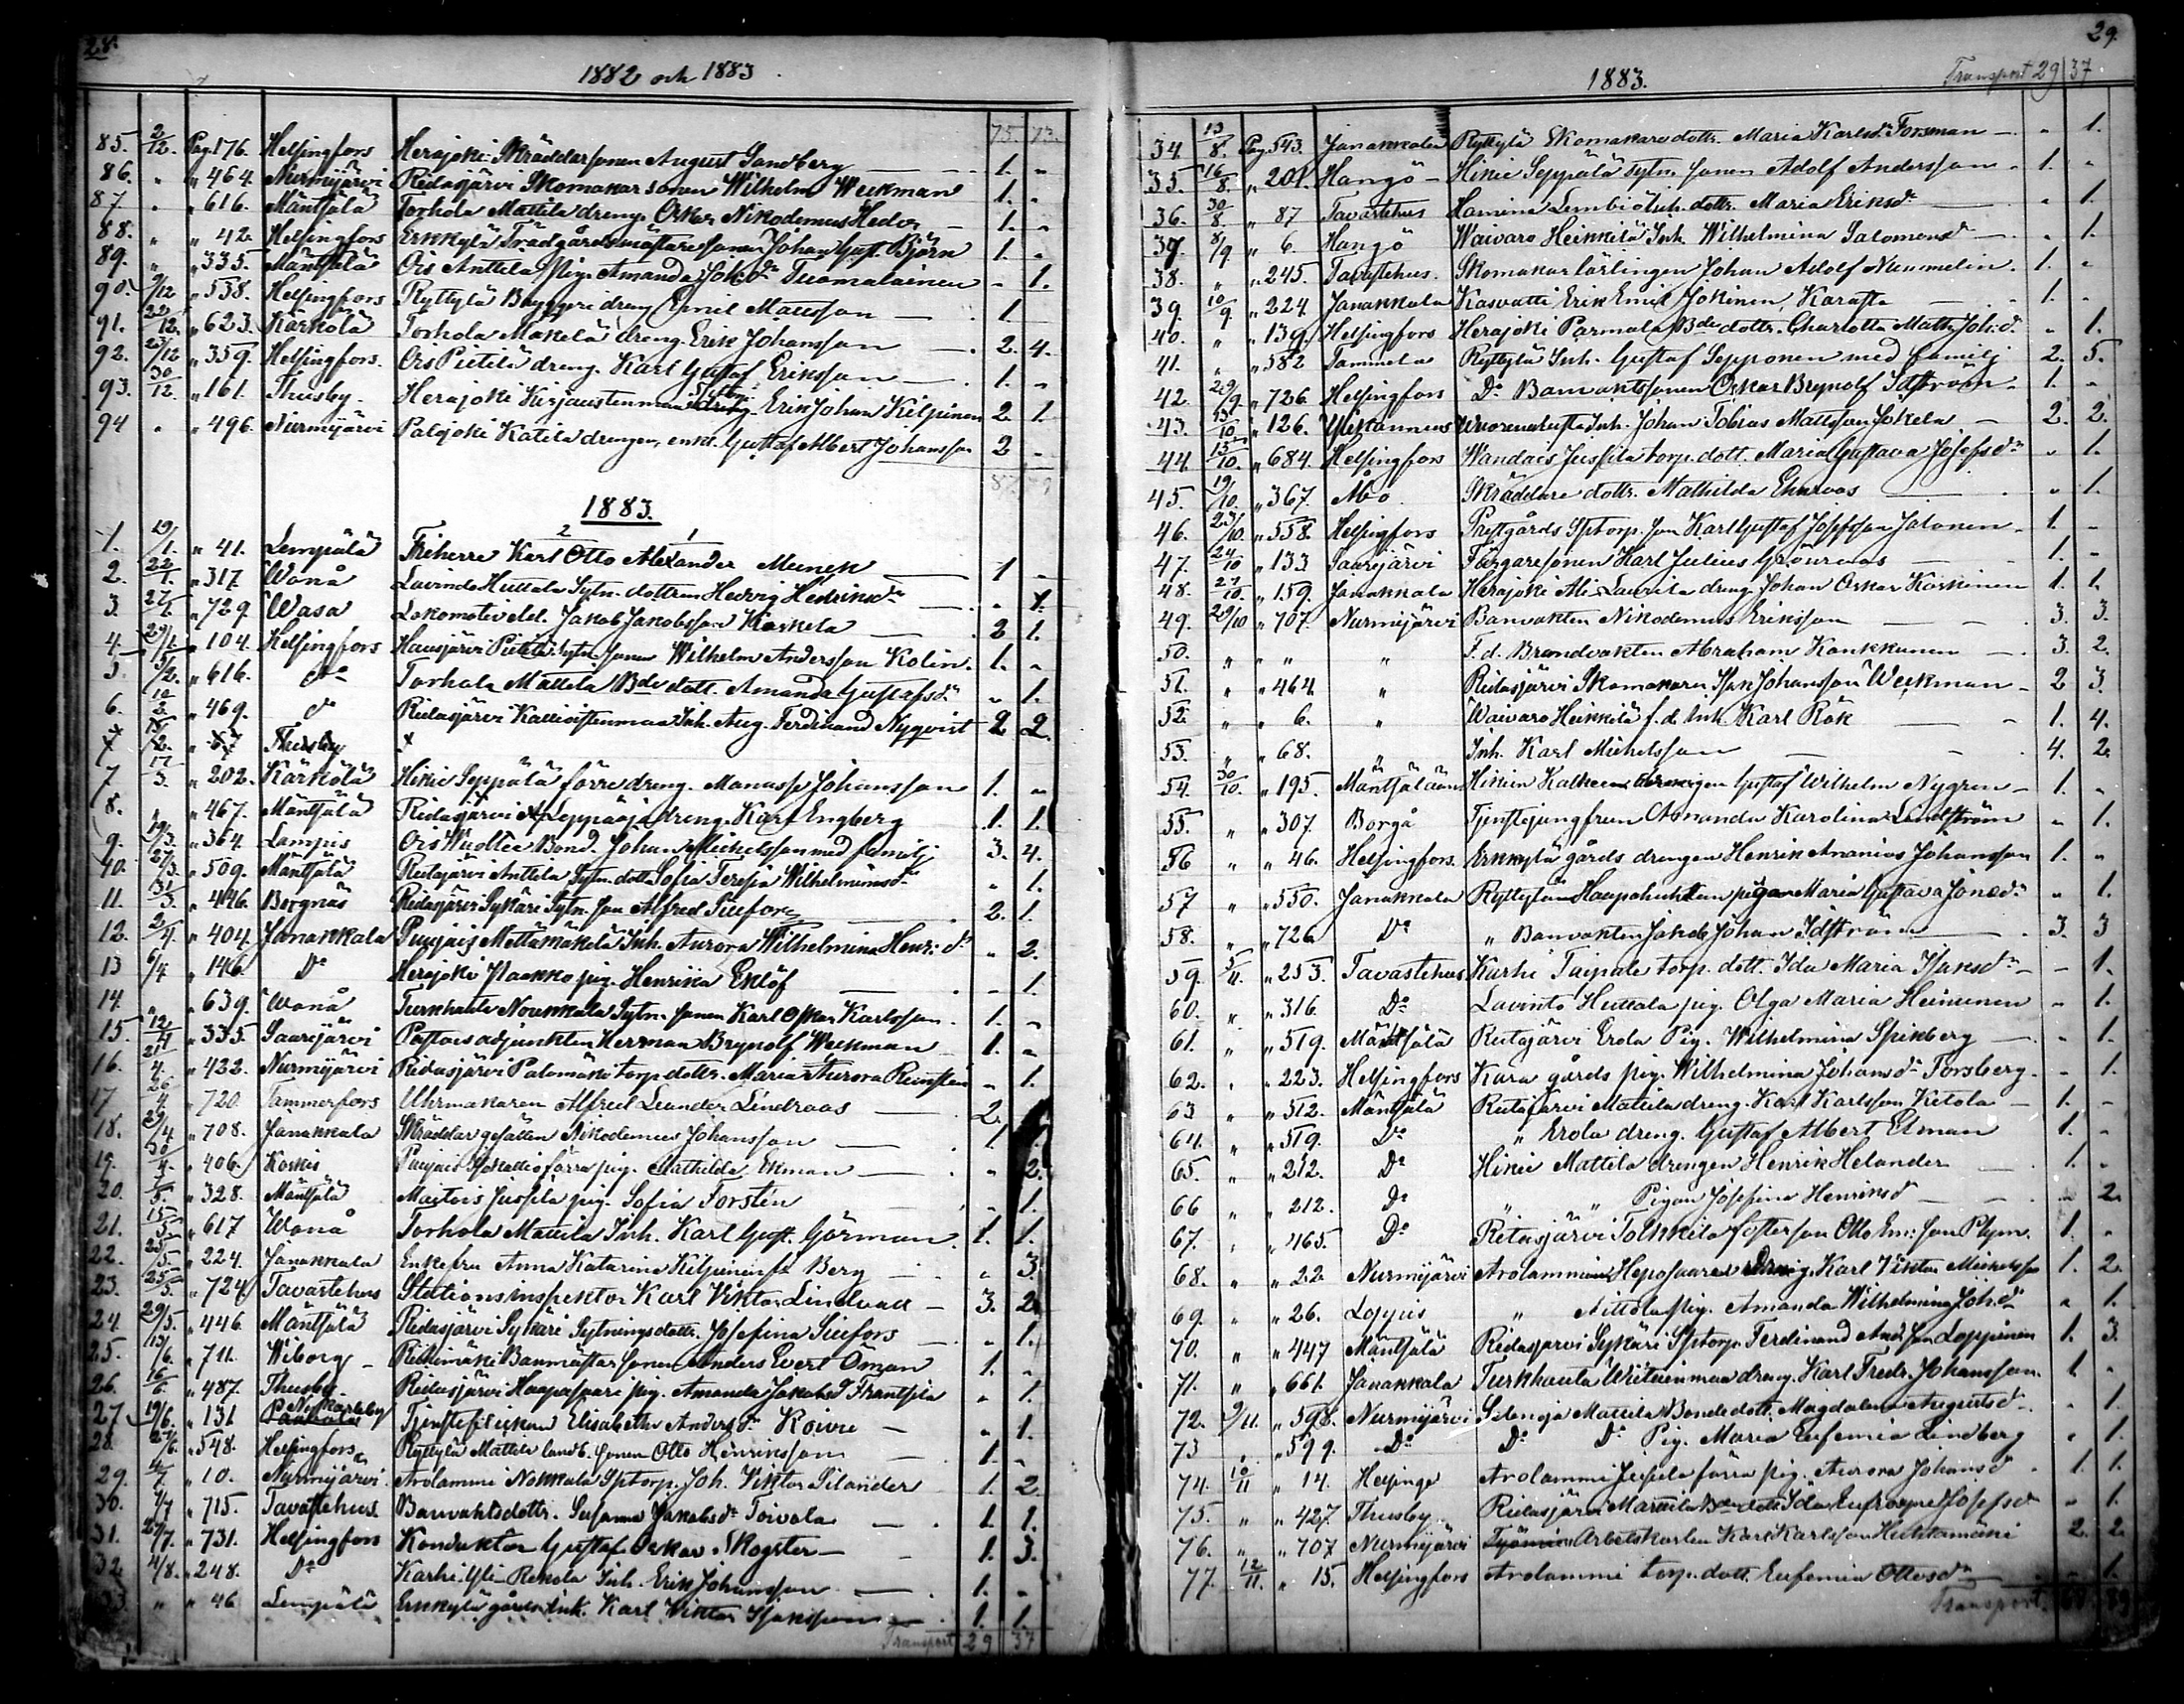 28.
1882 och 1883.
75. 73.
85. 2/12. Pag. 176. Helsingfors Herajoki Skräddarsonen August Sandberg 1. „
86. „ „ 464. Nurmijärvi Ridasjärvi Skomakarsonen Wilhelm Weckman 1. „
87 „ „ 616. Mäntsälä Torhola Mattila dreng. Oskar Nikodemus Heder 1. „
88. „ „ 42. Helsingfors Erkkylä Trädgårdsmästaresonen Johan Gust. Björn 1. „
89. „ „ 335. Mäntsälä Ois Anttila pig. Amanda Joh:dr Tuomalainen „ 1.
90. 9/12 „ 538. Helsingfors Ryttylä Bryggeridreng Emil Mattsson 1
91. 22/12. „ 623. Kärkölä Torhola Makelä dreng. Erik Johansson 2. 4.
92. 23/12 „ 359. Helsingfors. Ois Pietilä dreng. Karl Gustaf Eriksson 1. „
93. 30/12. „ 161. Thusby. Herajoki Kirjaustenmaa dreng. Erik Johan Kilpinen 2. 1.
94 „ „ 496. Nurmijärvi Palojoki Katila drengen, enkl. Gustaf Albert Johansson 2 „
1883.
1. 19/1. „ 41. Lempälä Friherre Karl Otto Alexander Munck 1 „
2. 22/1. „ 317 Wånå Lavinto Huttala Sytn. dottren Hedvig Henriksdr „ 1.
3. 27/1. „ 729. Wasa Lokomotiveld. Jakob Jakobsson Koskela 2 1.
4. 29/1. „ 104. Helsingfors Hausjärvi Pietilä Sytn. sonen Wilhelm Andersson Kolin. 1. „
5. 3/2. „ 616. Do Torhola Mattila Bde dott. Amanda Gustafsdr „ 1.
6. „ 469. Do Ridasjärvi Kallioistenmaa Inh. Aug. Ferdinand Nyqvist 2 2.
7 „ 57 Thusby
7 17/3. „ 202. Kärkölä Hikiä Seppälä förre dreng. Manasse Johansson 1. „
8. „ „ 467. Mäntsälä Ridasjärvi Leppäoja dreng. Karl Engberg 1. 1.
9. 19/3. „ 364. Lampis Ois Wuoltee Bond. Johan Mickelsson med familj 3. 4.
10. 27/3. „ 509. Mäntsälä Ridasjärvi Anttila Sytn. dott. Sofia Teresia Wilhelmsdr „ 1.
11. 31/3. „ 446. Borgnäs Ridasjärvi Sykäri Sytn. son Alfred Siefors 2. 1.
12. 2/4. „ 404. Janakkala Puujais Mettämäkelä Inh. Aurora Wilhelmina Henr:dr „ 2.
13 6/4 „ 146. Do Herajoki Paakko pig. Henrika Eklöf „ 1.
14. „ „ 639. Wånå Turkhauta Nounkala Sytn. sonen Karl Oskar Karlsson. 1. „
15 12/4 „ 333. Saarijärvi Pastorsadjunkten Herman Brynolf Weckman 1. „
16. 21/4. „ 422. Nurmijärvi Ridasjärvi Palomäki torp. dottr. Maria Aurora „ 1.
17 26/4 „ 720. Tammerfors Uhrmakaren Alfred Leander Lindroos 2.
18. 29/4 „ 708. Janakkala Skräddargesällen Nikodemus Johansson 1.
19. 30/4. „ 406. Koskis Puujais förra pig. Mathilda Ekman „ 2.
20. 7/5. „ 328. Mäntsälä Maitois Jussila pig. Sofia Forstén „ 1.
21. 15/5 „ 617 Wånå Torhola Mattila Inh. Karl Gust. Görman 1. 1.
22. 23/5. „ 224. Janakkala Enkefru Anna Katarina Kilpinen f. Berg „ 3.
23. 25/5. „ 724 Tavastehus Stationsinspektor Karl Viktor Lindvall 3. 2
24. 29/5. „ 446 Mäntsälä Ridasjärvi Sykäri Sytningsdottr. Josefina Siefors „ 1.
25. 13/6. „ 711. Wiborg Riihimäki Banmästarsonen Anders Evert Öman 1. „
26. 16/6. „ 487. Thusby Ridasjärvi Haapasaari pig. Amanda Jakobsdr Frantsila „ 1.
27 19/6. „ 131 Nykarleby Tjensteflickan Elisabeth Andersdr Koivu „ 1.
28. 27/6. „ 548. Helsingfors Ryttylä Mattila landb. sonen Otto Henriksson 1. „
29. 4/7. „ 10. Nurmijärvi. Arolammi Nokkala Sptorp. Joh. Viktor Silander 1. 2.
30. 7/7 „ 715. Tavastehus. Banvaktsdottr. Susanna Jakobsdr Toivola 1. 1.
31. 27/7. „ 731. Helsingfors Konduktör Gustaf Oskar Skogster 1. 3.
32 4/8. „ 248. Do Karhi Yli-Rekola Inh. Erik Johansson 1. „
33. „ „ 46 Lempälä Erkkylä gårds Ink. Karl Viktor Isaksson 1. 1.
Transport 29 37
29.
1883.
Transport 29 37
34 13/8. Pag. 543. Janakkala Ryttylä Skomakaredottr. Maria Karlsdr Forsman „ 1.
35. 16/8. „ 201. Hangö Hikiä Seppälä Sytn. sonen Adolf Andersson 1. „
36. 30/8 „ 87 Tavastehus Hamina Lembiö Inh. dottr. Maria Eriksdr „ 1.
37. 8/9 „ 6. Hangö Waivaro Heikkilä Inh. Wilhelmina Salomonsdr „ 1.
38. „ „ 245. Tavastehus. Skomakarlärlingen Johan Adolf Nummelin. 1. „
39. 10/9. „ 224. Janakkala Kasvatti Erik Emil Jokinen, Karafta 1. „
40. „ „ 139. Helsingfors Herajoki Parmala Bde dottr. Charlotta Math. Joh:dr „ 1.
41. „ „ 582 Tammela Ryttylä Inh. Gustaf Sepponen med familj 2. 5.
42. 29/9. „ 726. Helsingfors Do Banvaktssonen Oskar Brynolf Idström 1. „
43. „ 126. Wuorenhusta Inh. Johan Tobias Mattsson Jokela 2. 2.
44. 15/10. „ 684. Helsingfors Wandais Jussila torp. dott. Maria Gustava Josefsdr „ 1.
45. 19/10. „ 367. Åbo Skräddare dottr. Mathilda Ekroos „ 1.
46. 23/10. „ 558. Helsingfors Prestgårds Sptorp. son Karl Gustaf Josefsson Jalonen 1. „
47. 24/10 „ 133 Saarijärvi Färgaresonen Karl Julius Grönroos 1. „
48. 27/10. „ 159. Janakkala Herajoki Ali-Laurila dreng. Johan Oskar Koskinen 1. 1.
49. 29/10 „ 707. Nurmijärvi Banvakten Nikodemus Eriksson 3. 3.
50. „ „ „ „ F. d. Brandvakten Abraham Konkkunen 3. 2.
51. „ „ 464. „ Ridasjärvi Skomakaren Isak Johansson Weckman 2 3.
52. „ „ 6. „ Waivaro Heikkilä f. d. Inh. Karl Rök 1. 4.
53. „ „ 68. „ Inh. Karl Mickelsson 4. 2.
54. 30/10. „ 195. Mäntsälä Hikiän drengen Gustaf Wilhelm Nygren 1. „
55. „ „ 307. Borgå Tjenstejungfrun Amanda Karolina Lundström „ 1.
56 „ „ 46. Helsingfors. Erkkylä gårds drengen Henrik Ananias Johansson 1. „
57 „ „ 550. Janakkala Ryttylän Haapahuhtan pigan Maria Gustava Jonasdr „ 1.
58. „ „ 726 Do „ Banvakten Jakob Johan Idström 3. 3
59. 5/11. „ 253. Tavastehus Karhi Taipale torp. dott. Ida Maria Isaksdr „ 1.
60. „ „ 316. Do Lavinto Huttala pig. Olga Maria Heinonen „ 1.
61. „ „ 519. Mäntsälä Ritasjärvi Erola Pig. Wilhelmina Spikberg „ 1.
62. „ „ 223. Helsingfors Kara gårds pig. Wilhelmina Johansdr Forsberg „ 1.
63 „ „ 512. Mäntsälä Ritasjärvi Mattila dreng. Karl Karlsson Ketola 1. „
64. „ „ 519. Do „ Erola dreng. Gustaf Albert Elman 1. „
65. „ „ 212. Do Hikiä Mattila drengen Henrik Helander 1. „
66 „ „ 212. Do „ „ Pigan Josefina Henriksdr „ 2.
67. „ „ 465. Do Ritasjärvi Tolkkila fosterson Otto Em:son Plym. 1. „
68. „ „ 22 Nurmijärvi Arolammi Heposaari Dreng. Karl Viktor Mickelsson 1. 2.
69. „ „ 26. Loppis „ Aittola pig. Amanda Wilhelmina Joh:dr „ 1.
70. „ „ 447 Mäntsälä Ridasjärvi Sykäri Sptorp. Ferdinand And:son Loppinen 1. 3.
71. „ „ 661. Janakkala Turkhauta Uhituvenmaa dreng. Karl Fredr. Johansson. 1 „
72. 9/11. „ 598. Nurmijärvi Selenoja Mattila Bonde dott. Magdalena Augustsdr „ 1.
73 „ „ 599. Do Do Do Pig. Maria Eufemia Lindberg „ 1.
74. 10/11 „ 14. Helsinge Arolammi Jussila förra pig. Aurora Johansdr 1. 1.
75. „ „ 427. Thusby Ridasjärvi Marttila Bde dott. Ida Eufrosyne Josefsdr „ 1.
76. „ „ 707 Nurmijärvi Arbetskarlen Karl Karlsson Huhtamäki 2. 2.
77. 12/11. „ 15. Helsingfors Arolammi torp. dott. Eufemia Ottosdr „ 1.
Transport. 89